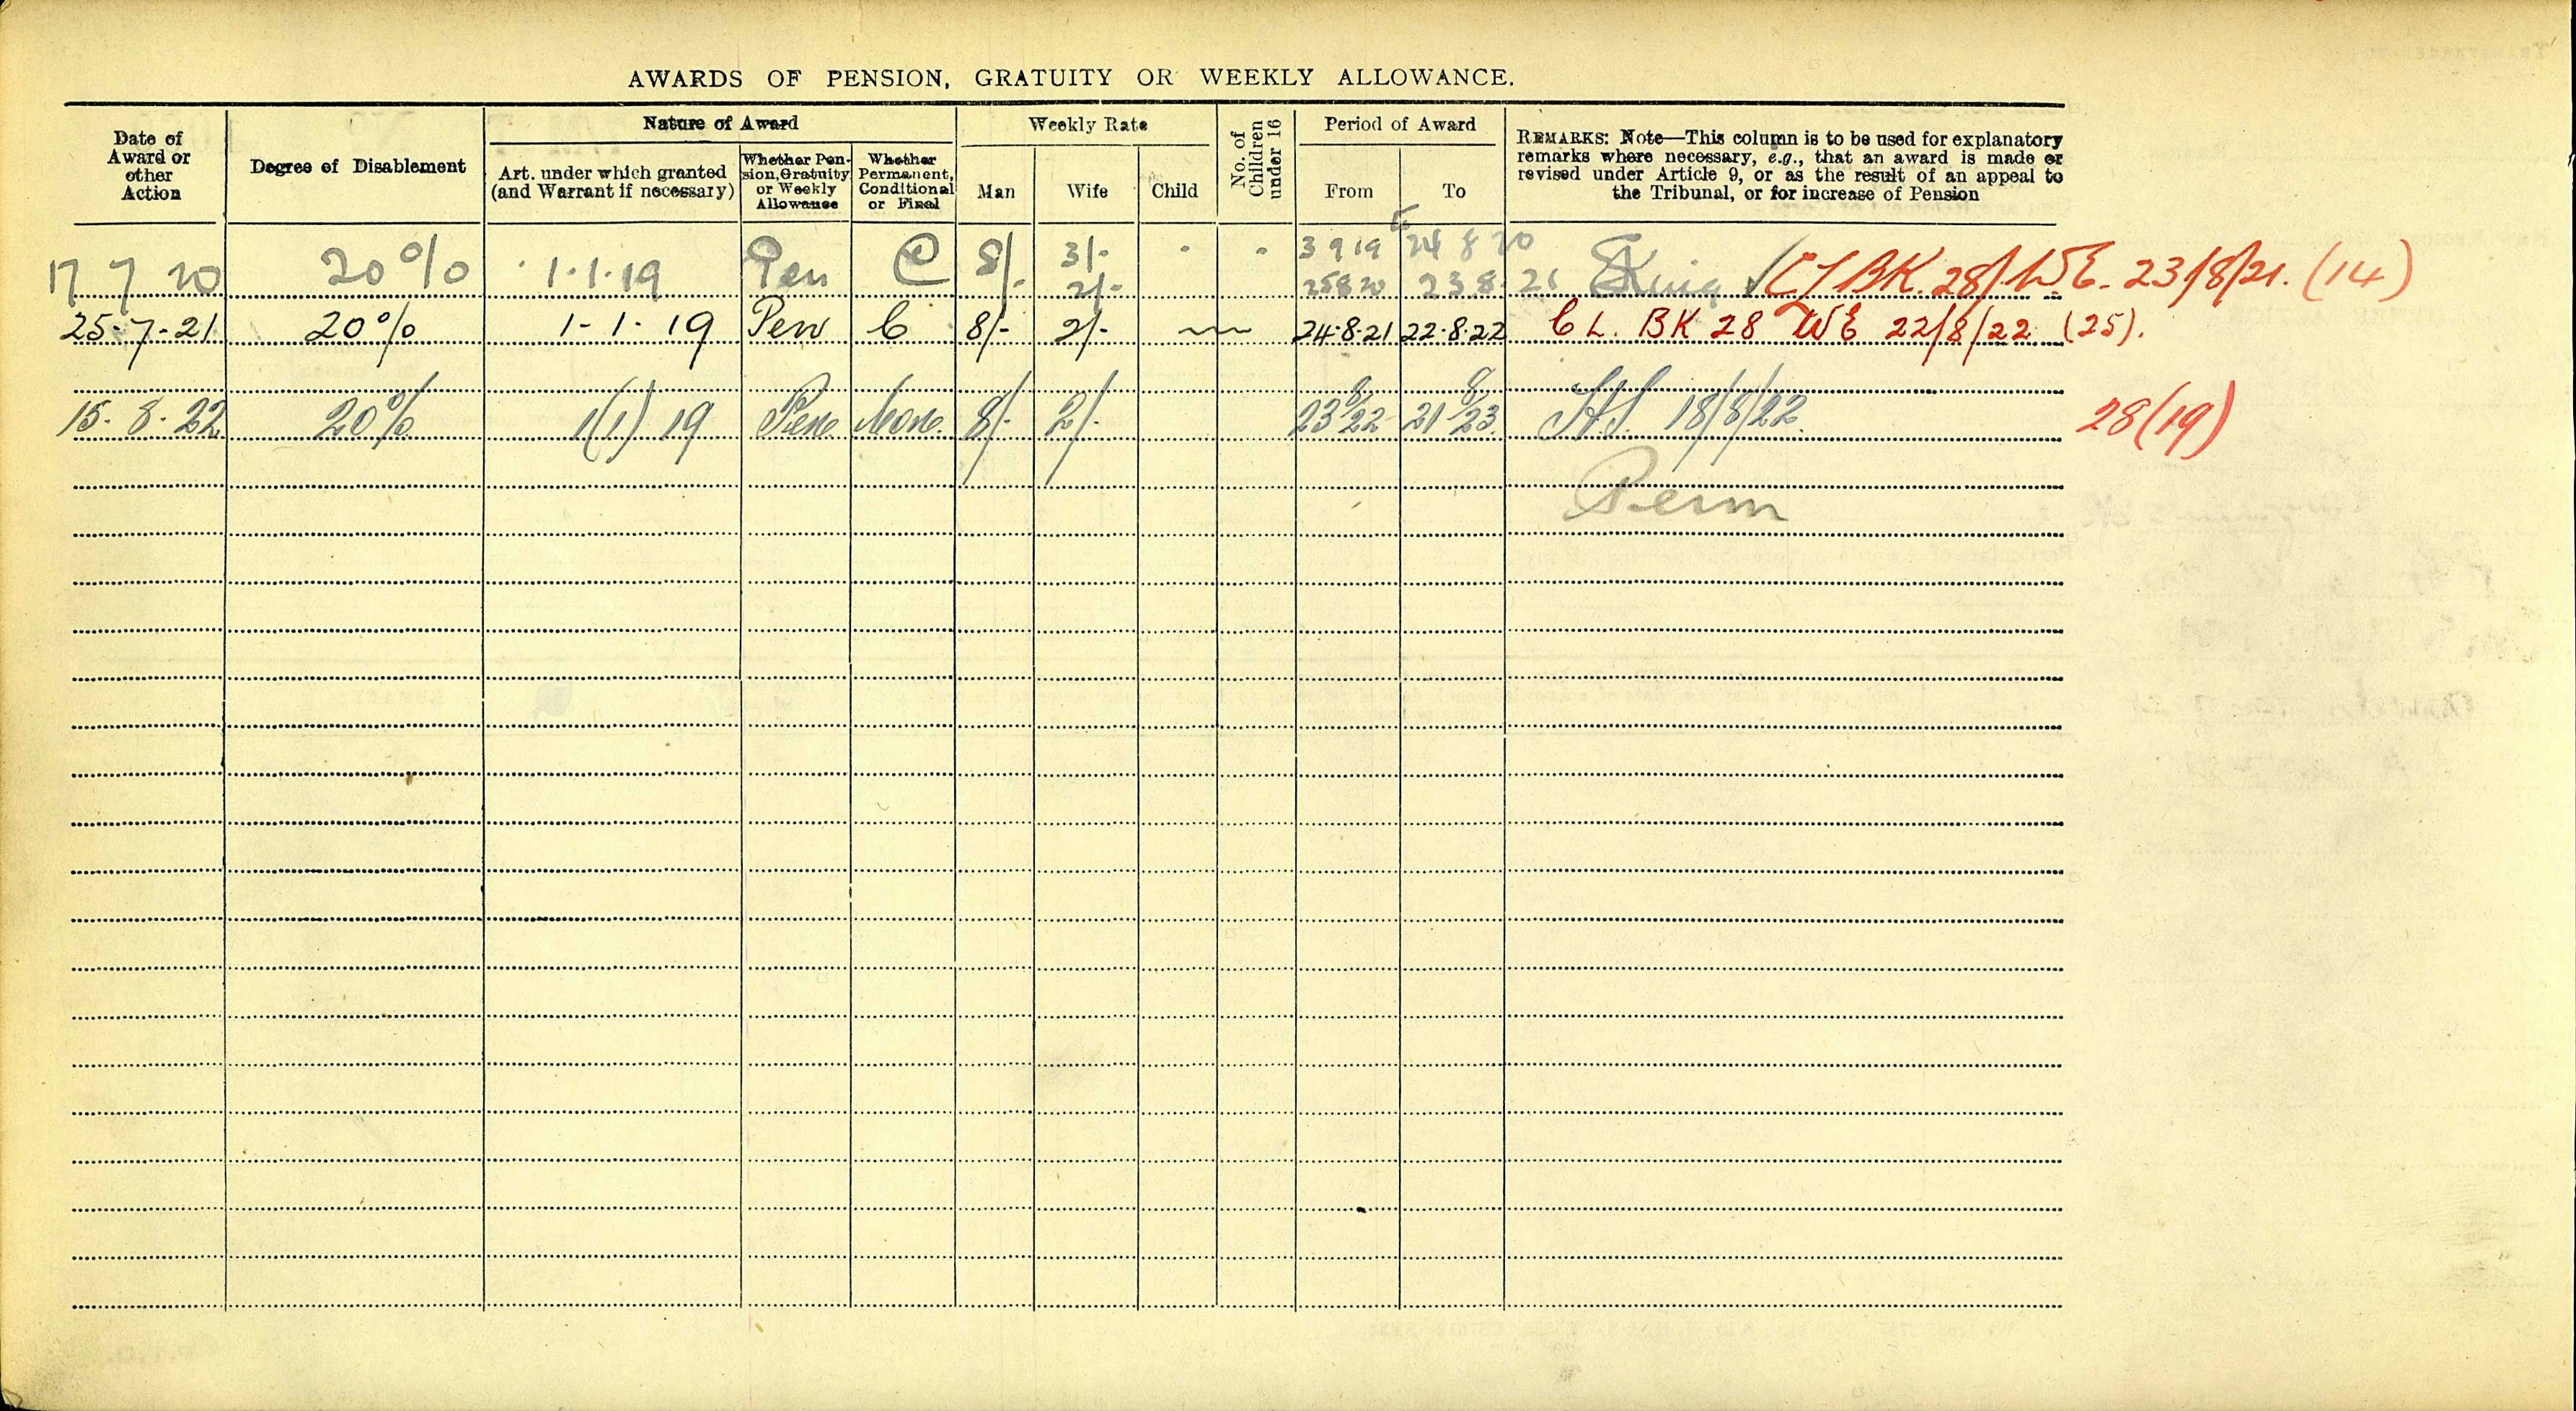 AWARDS OF PENSION, GRATUITY OR WEEKLY ALLOWANCE.
Date of Award or other Action
Degree of Disablement
Nature of Award
Art. under which granted (and Warrant if necessary)
Whether Pension, Gratuity or Weekly Allowance
Whether Permanent, Conditional or Final
Weekly Rate
Man
Wife
Child
No. of Children under 16
Period of Award
From
To
REMARKS: Note—This column is to be used for explanatory
remarks where necessary, e.g., that an award is made or
revised under Article 9, or as the result of an appeal to
the Tribunal, or for increase of Pension
17 7 20 20% 1.1.19 Pen C 8/- 3/- - - 3 9 19 24 8 20
2/- 25 8 20 23 8 21 BK. 28/ W.E. 23/8/21. (14)
25-7-21 20% 1-1-19 Pen C 8/- 2/- 24.8.21 22.8.22 C L. BK 28 WE 22/8/22 (25).
15.8.22 20% 1(1) 19 Pen 8/- 2/- 23 8/22 21 8/23 18/8/22 28(19)
Perm